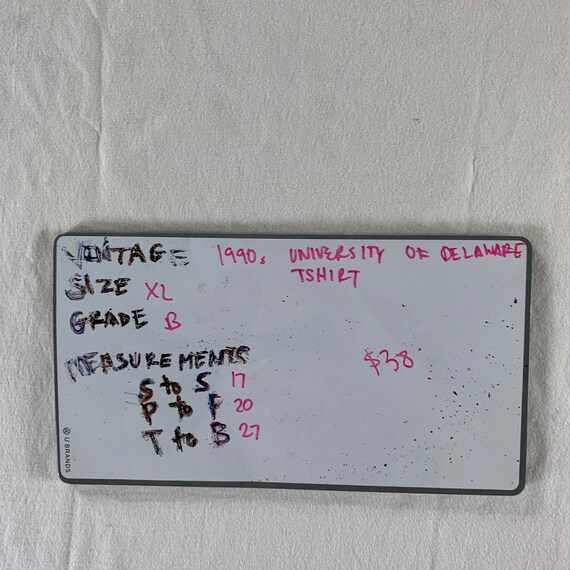 VINTAGE 1990s UNIVERSITY OF DELAWARE
TSHIRT
SIZE XL
GRADE B
MEASUREMENTS
$38
S to S 17
P to P 20
T to B 27
U BRANDS